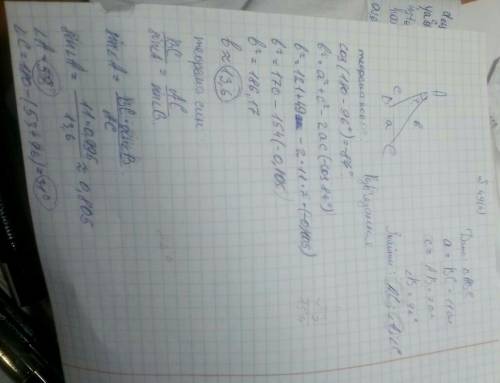 § 49(2)
Дано: ΔABC
a = BC = 11см
c = AB = 7см
∠B = 96°
Знайти: AC, ∠A, ∠C
A
c
b
B
a
C
Розв'язання
теорема
cos(180-96°) = -84°
b² = a² + c² - 2ac (-cos 84°)
b² = 121 + 49 - 2·11·7·(-0,105)
b² = 170 - 154(-0,105)
b² = 186,17
b ≈ 13,6
теорема син
BC/sin A = AC/sin B
sin A = BC·sin B/AC
sin A = 11·0,995/13,6 ≈ 0,805
∠A = 53°
∠C = 180 - (53+96) = 31°